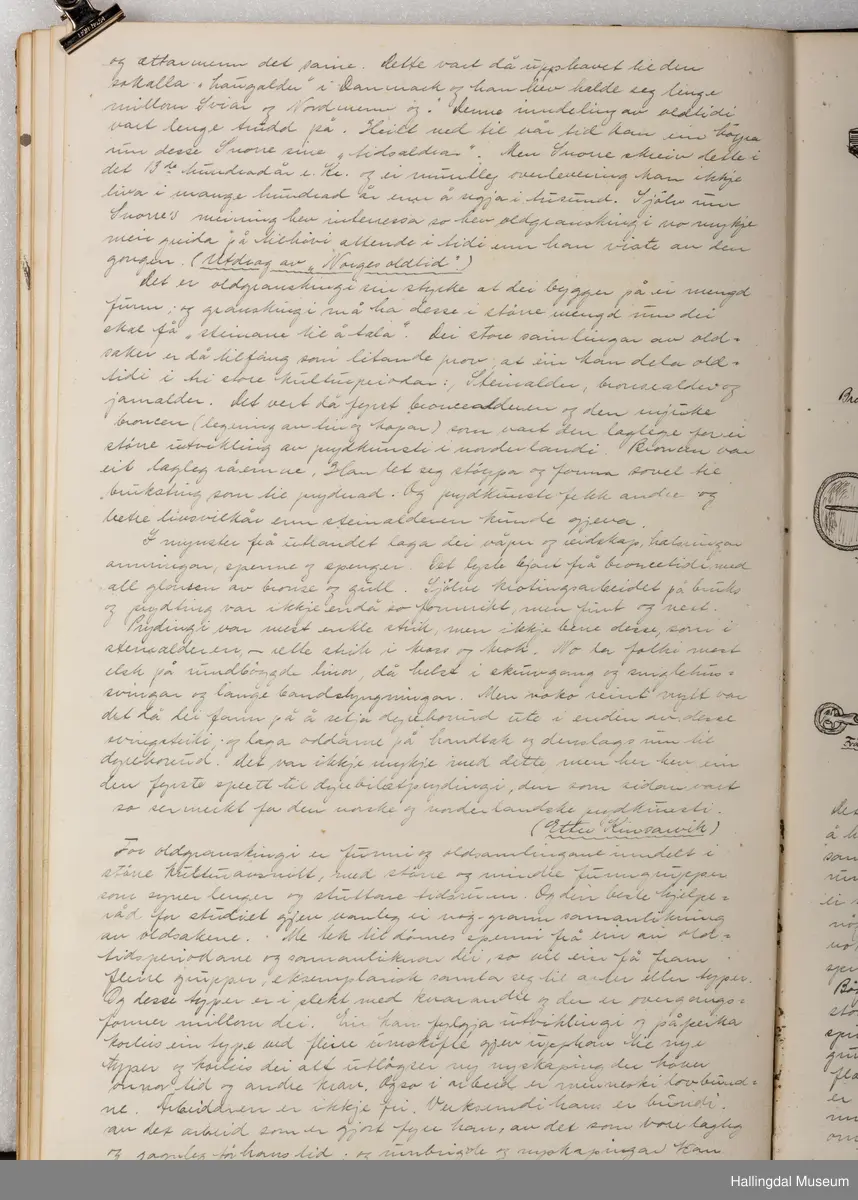 og ættarmenn det same. Dette vart då upphavet til den
sokalla „haugalder" i Danmark og han blev helde seg lenge
millom Sviar og Nordmenn og. Denne inndeling av oldtidi
vart lenge trudd på. Heilt ned til vår tid kan ein høyra
um desse Snorre sine „tidsaldrar". Men Snorre skreiv dette i
det 13de hundradår e. Kr. og ei munnleg overlevering kan ikkje
liva i mange hundrad år enn å segja i tusund. Sjølv um
Snorre's meining hev interessa so hev oldgranskingi no mykje
meir greida på tilhøvi attende i tidi enn han visste av den
gongen. (Utdrag av „Norges oldtid")
Det er oldgranskingi sin styrke at dei bygger på ei mengd
funn; og granskingi må ha desse i større mengd um dei
skal få „steinane til å tala". Dei store samlingar av old=
saker er då tilfang som litande prov, at ein kan dela old=
tidi i tri store kulturperiodar:, Steinalder, bronsealder og
jarnalder. Det vert då fyrst broncealderen og den mjuke
broncen (legering av tin og kopar) som vart den laglege for ei
større utvikling av prydkunsti i norderlandi. Broncen var
eit lagleg råemne. Han let seg støypa og forma sovel til
brukating som til prydnad. Og prydkunsti fekk andre og
betre livsvilkår enn steinalderen kunde gjeva.
I mynster frå utlandet laga dei våpn og reidskap, halsringar
armringar, spenne og spenger. Det lyste bjart frå broncetidi, med
all glansen av bronse og gull. Sjølve krotingsarbeidet på bruks
og prydting var ikkje endå so formrikt, men fint og nett.
Prydingi var mest enkle strik, men ikkje bene desse, som i
steinalderen, – elle strik i kross og krok. No la folki mest
elsk på rundbøygde linor, då helst i skruvgang og sniglehus=
svingar og lange bandslyngningar. Men noko reint nytt var
det då dei fann på å setja dyrehovud ute i enden av desse
svingstriki; og laga oddarne på handtak og denslags um til
dyrehovud. Det var ikkje mykje med dette, men her hev ein
den fyrste sprett til dyrebiletprydingi, den som sidan vart
so sermerkt for den norske og norderlandske prydkunsti.
(Etter Kinsarvik)
For oldgranskingi er funni og oldsamlingane inndelt i
større kulturavsnitt, med større og mindre funngrupper
som syner lenger og stuttare tidsrum. Og den beste hjelpe=
råd for studiet gjev vanleg ei nøg-grann samanlikning
av oldsakene. Me tek til dømes spenni frå ein av old=
tidsperiodane og samanliknar dei, so vil ein få fram
fleire grupper, eksemplarisk samla seg til arter eller typer.
Og desse typer er i slekt med kvarandre og der er overgangs=
former millom dei. Ein kan fylgja utviklingi og påpeika
korleis ein type ved fleire umskifte gjev upphav til nye
typer og korleis dei att utløyser ny nyskaping der høver
onnor tid og andre krav. Også i arbeid er menneski lovbund=
ne. Arbeidaren er ikkje fri. Verksemdi hans er bundi.
av det arbeid som er gjort fyrr han, av det som vore lagleg
og gagnleg för hans tid; og umbrigde og nyskapingar kan
Hallingdal Museum